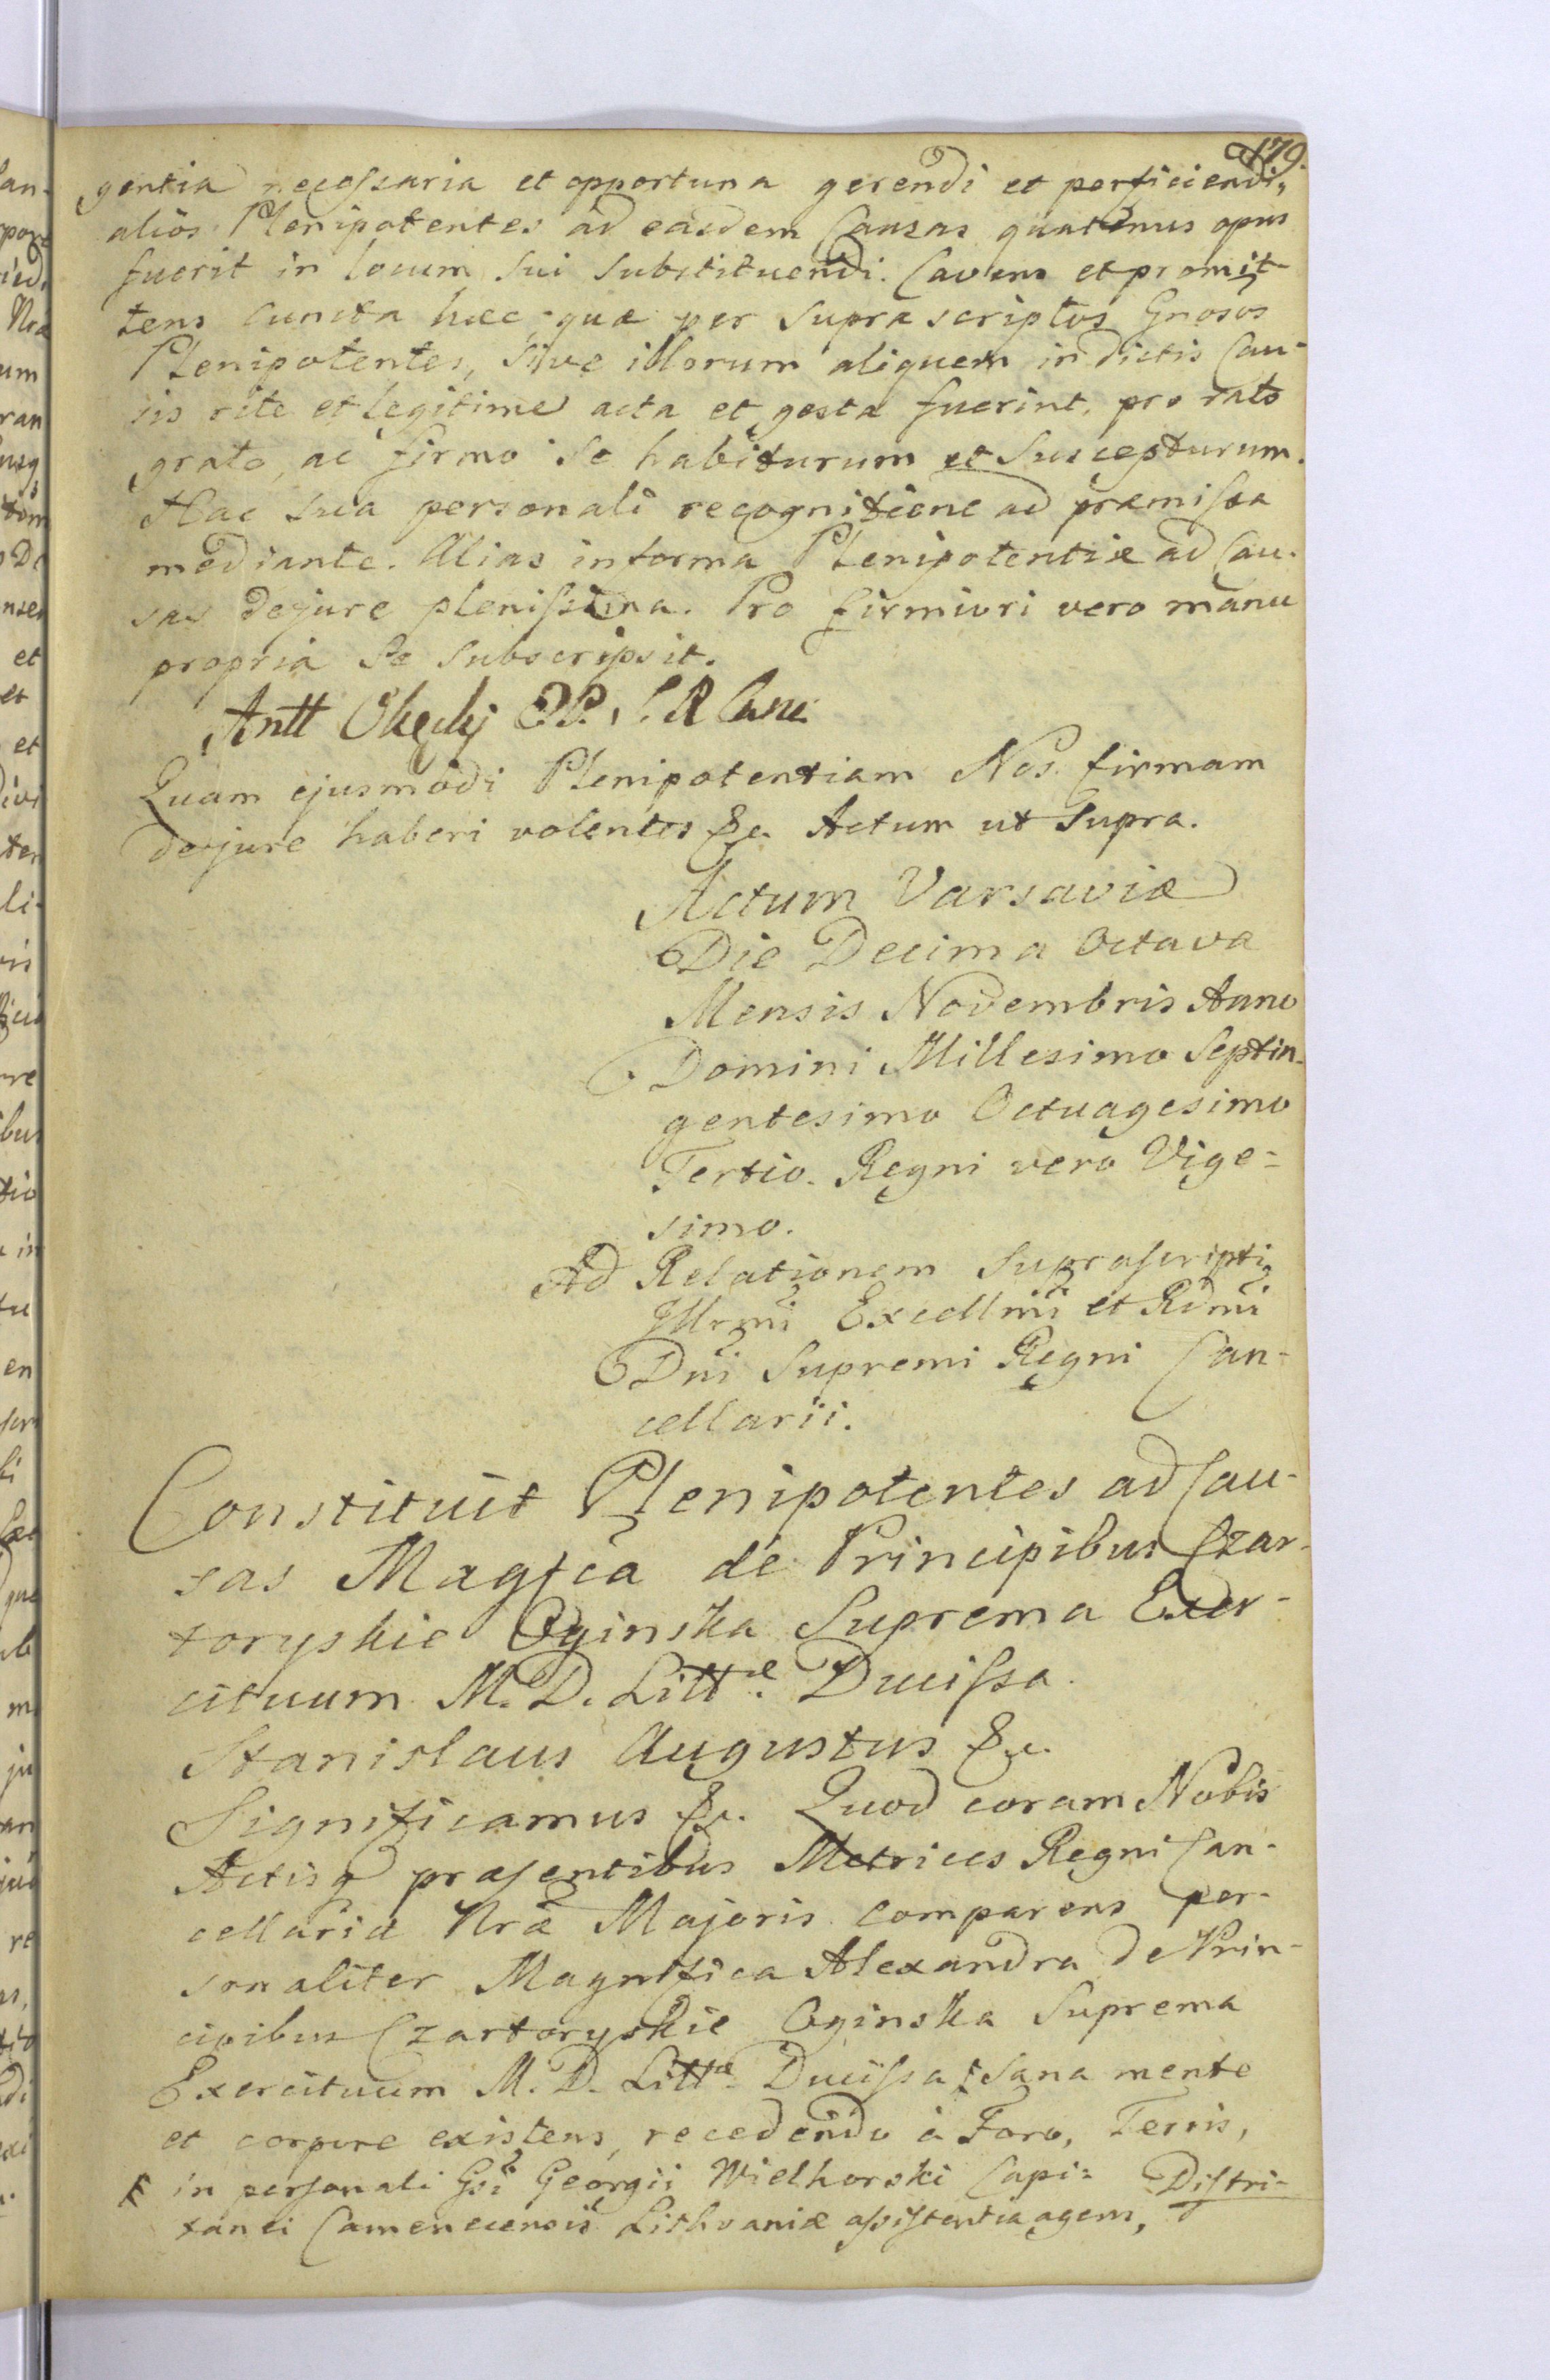 179.
gentia necessaria et opportuna gerendi et perficiendi,
alios Plenipotentes ad easdem Causas quatenus opus
fuerit in locum sui substituendi. Cavens et promit-
tens cuncta hæc quæ per suprascriptos Gnosos
Plenipotentes, sive illorum aliquem in dictis Cau-
sis rite et legitime acta et gesta fuerint, pro rato
grato, ac firmo se habiturum et suscepturum.
Hac sua personali recognitione ad præmissa
mediante. Alias in forma Plenipotentiæ ad Cau-
sas de jure plenissima. Pro firmiori vero manu
propria se subscripsit.
Antt Okęcky
Quam ejusmodi Plenipotentiam Nos firmam
de jure haberi volentes &c. Actum ut supra.
Actum Varsaviæ
Die Decima Octava
Mensis Novembris Anno
Domini Millesimo Septin-
gentesimo Octuagesimo
Tertio. Regni vero Vige-
simo.
Ad Relationem suprascripti
Illrmi Excellmi et Rdmi
Dni Supremi Regni Can-
cellarii.
Constituit Plenipotentes ad Cau-
sas Magfca de Principibus Czar-
toryskie Oginska Suprema Exer-
cituum M. D. Littæ. Ducissa.
Stanislaus Augustus &c.
Significamus &c. Quod coram Nobis
Actisq præsentibus Metrices Regni Can-
cellariæ Nræ Majoris comparens per-
sonaliter Magnifica Alexandra de Prin-
cipibus Czartoryskie Oginska Suprema
Exercituum M. D. Littæ. Ducissa sana mente
et corpore existens, recedendo à Foro, Terris,
Distri-
in personali Gsi Georgii Wielhorski Capi-
tanei Camenecensis Lithvaniæ assistentia agens,